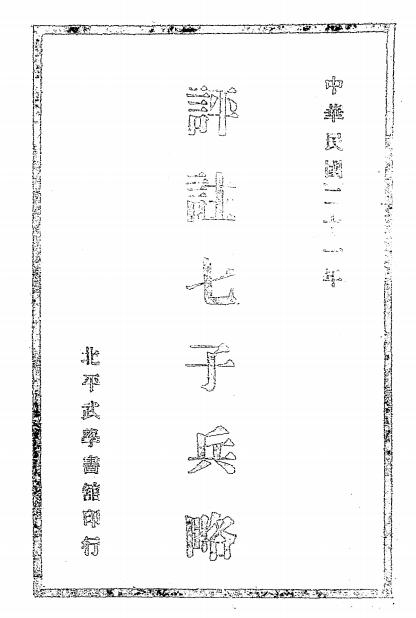 中華民國二十一年
評註七子兵略
北平武學書館印行